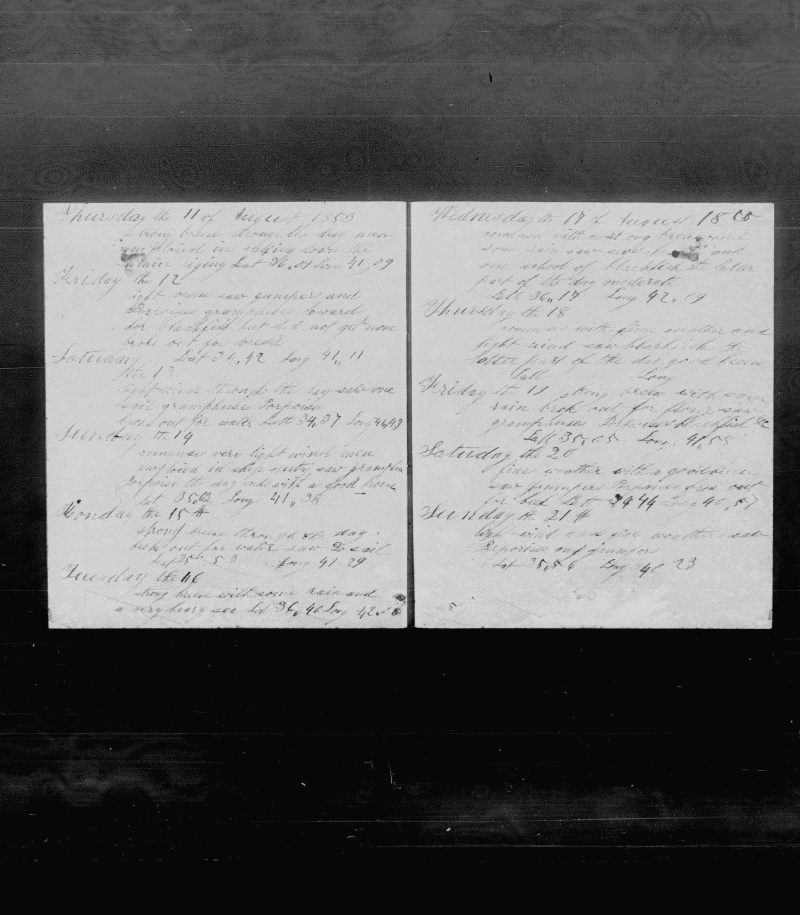 Thursday the 11 of August 1858
strong breeze through the day men
employed in
rigging Lat 36,,01 Lon 41,,09
Friday the 12
light breeze saw jumper and
grampuses lowerd
for blackfish but did not get none
broke out for bread
Saturday Lat 34,,42 Long 41,,11
the 13
light wind through the day saw one
sail grampuses Porpoise
broke out for water Latt 34,,37 Long 44,48
Sunday the 14
comense very light wind men
employd in ship duty saw grampus
porpoise the day ends with a good breeze
Lat 35,,62 Long 41,,36
Monday the 15 th
strong breese through the day
broke out for water saw sail
Lat 35 53 Long 41 29
Tuesday the 16
strong breese with some rain and
a very heavy sea Lat 36,,40 Long 42
Wednesday the 17 of August 1858
comense with a strong breese and
some rain saw and
one school of blackfish the latter
part of the day moderate
Latt 36,,17 Long 42,,09
Thursday the 18
comense with fine weather and
light wind saw blackfish the
latter part of the day good breese
Latt Long
Friday the 19 strong breese with some
rain brok out for flour saw
grampuses Porpoises blackfish &c
Latt 35,,05 Long 41,5
Saturday the 20
fine weather with a good breese
saw jumper Porpoises brok out
for Lat 34 44 Long 40,,57
Sunday the 21 th
light wind and fine weather saw
Porpoises and jumpers
Lat 35,56 Long 40 23